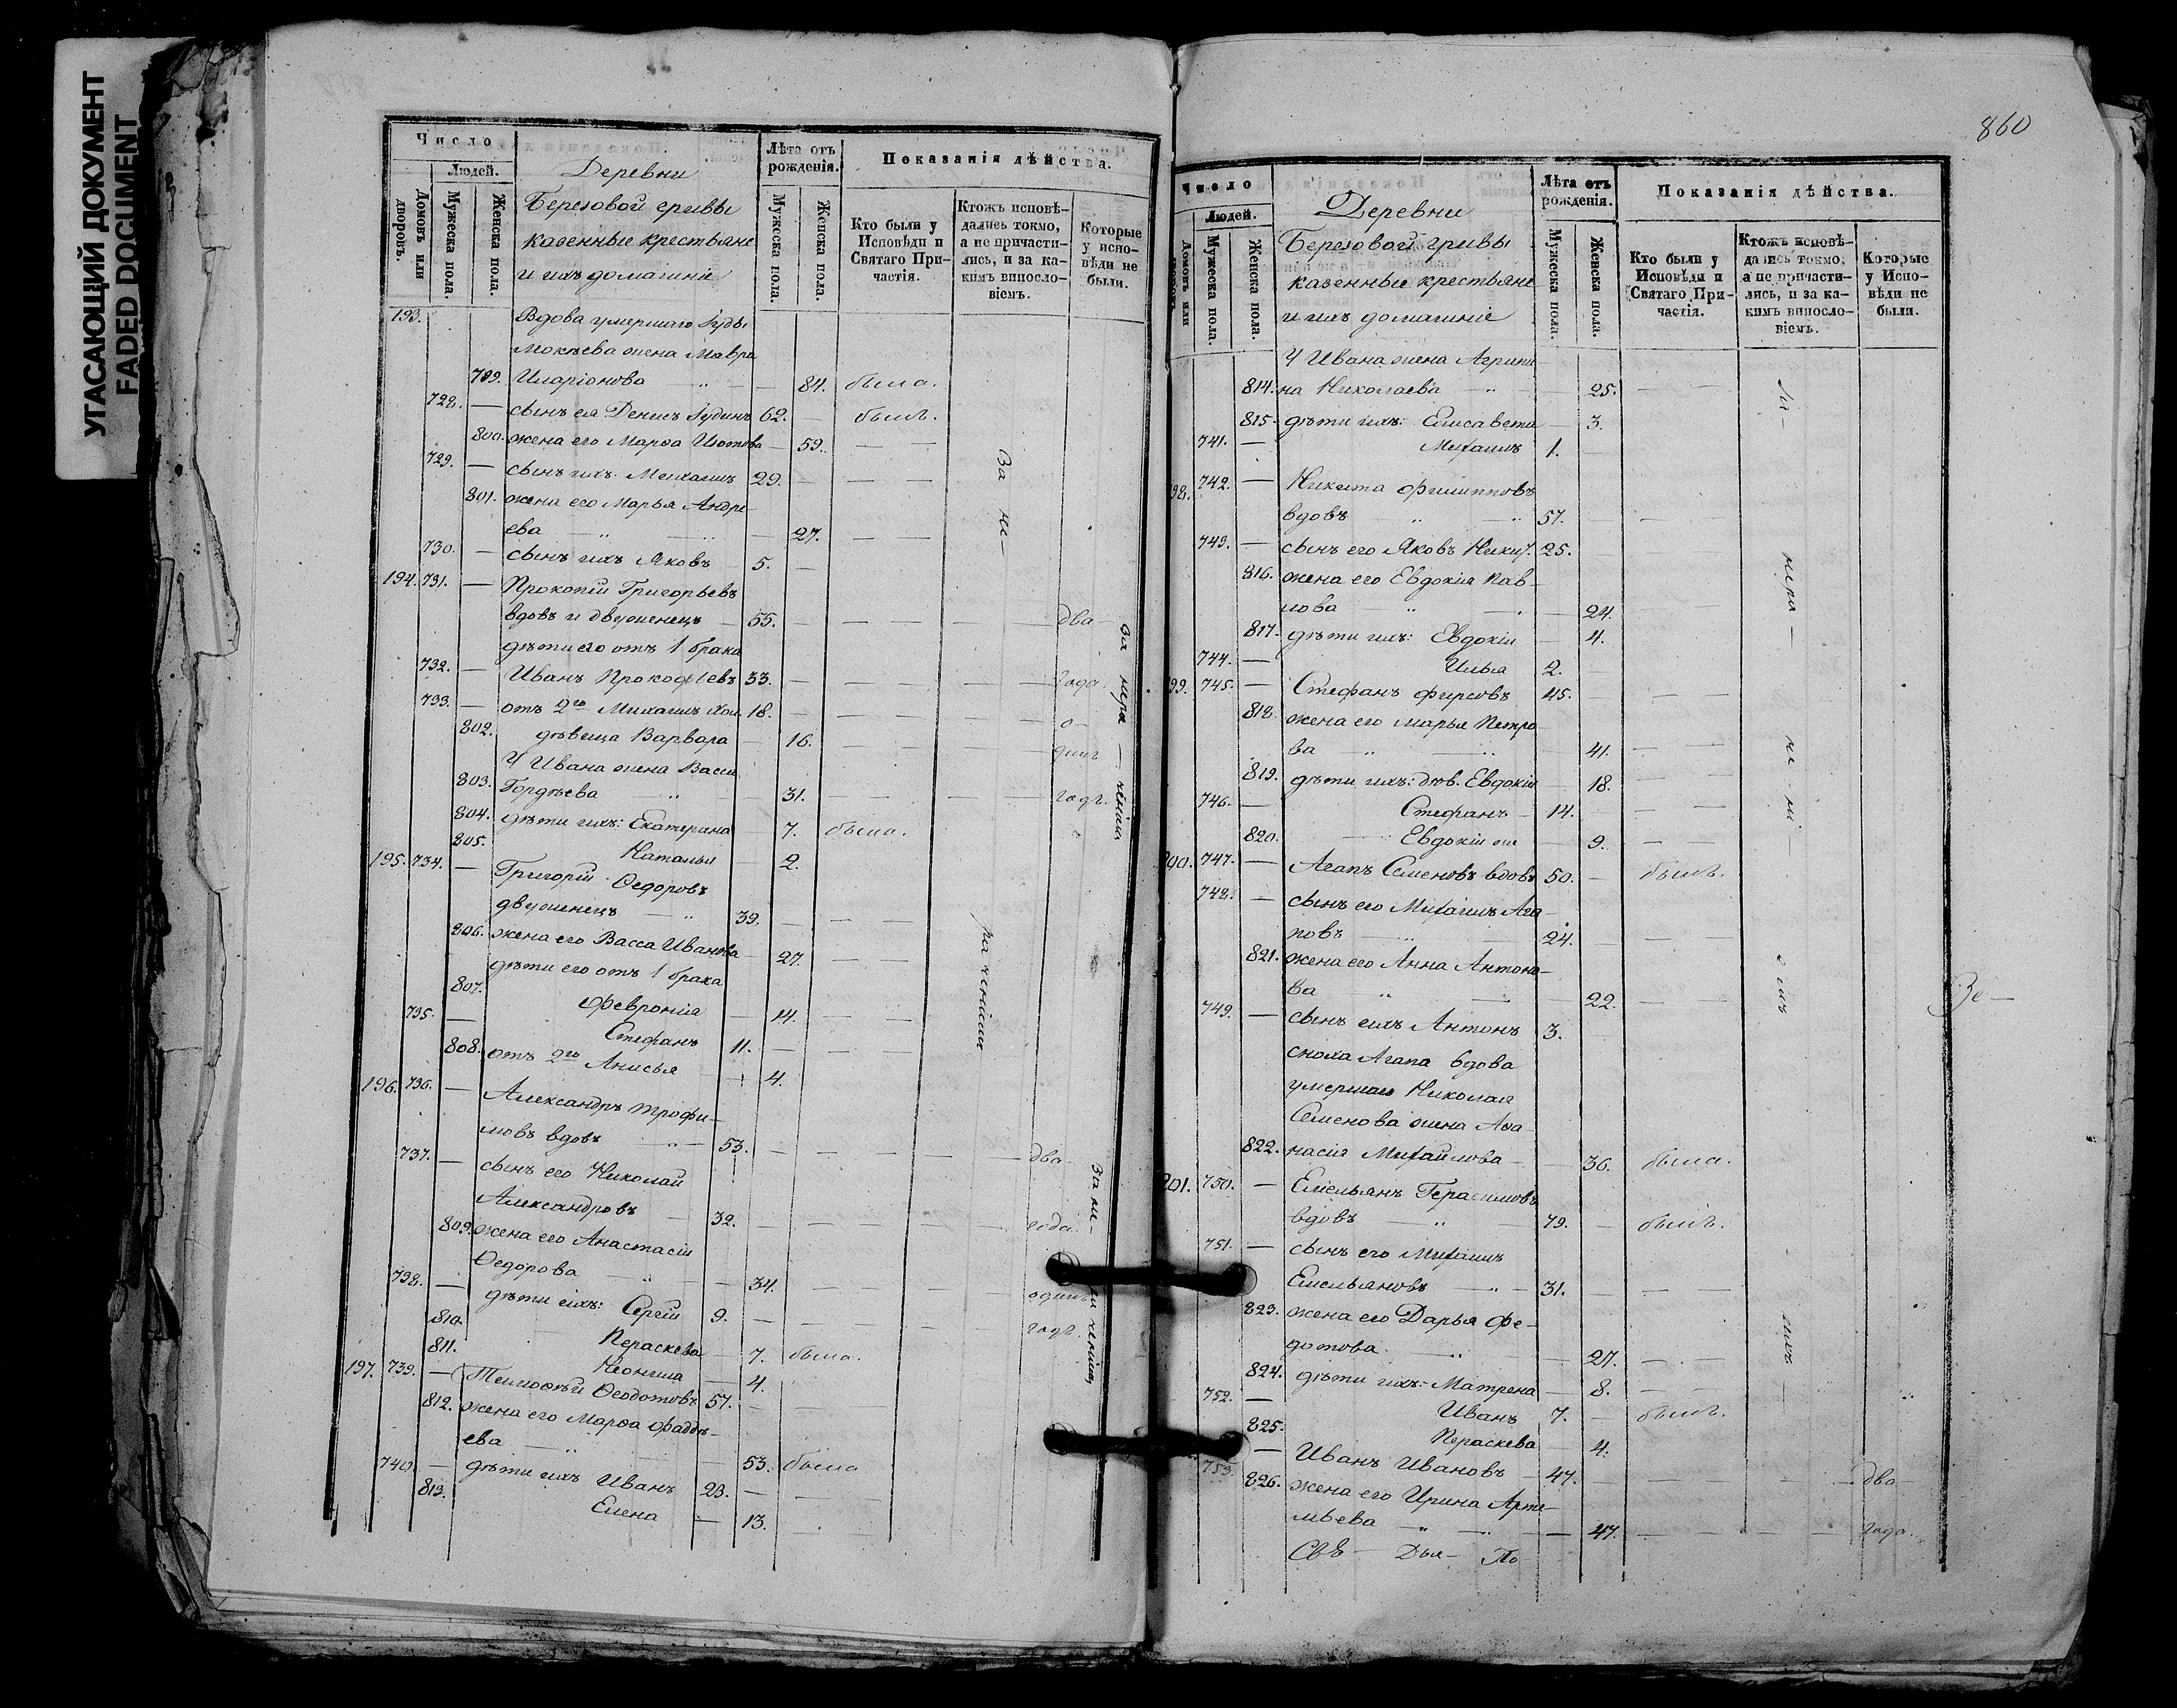 УГАСАЮЩИЙ ДОКУМЕНТ
FADED DOCUMENT
Число
Людей.
Домовъ или дворовъ.
Мужеска пола.
Женска пола.
Деревни
Березовой гривы
казенные крестьяне
и ихъ домашніе
Лѣта отъ рожденія.
Мужеска пола.
Женска пола.
Показанія дѣйства.
Кто были у Исповѣди и Святаго Причастія.
Ктожъ исповѣдались токмо, а не причастились, и за какимъ винословіемъ.
Которые у исповѣди не были.
193. Вдова умершаго Іуды
Мокѣева жена Мавра
799. Иларіонова — 84. была.
728. — сынъ ея Денисъ Іудинъ 62. — былъ.
800. жена его Марѳа Изотова — 59. — —
729. — сынъ ихъ Михаилъ 29. — — —
801. жена его Марья Андре-
ева — 27. — —
730. — сынъ ихъ Яковъ 5. —
194. 731. — Прокопій Григорьевъ
вдовъ и двуженецъ — 55. — — — — — два
дѣти его отъ 1 брака
732. — Иванъ Прокофіевъ 33. — — — — — года.
733. — отъ 2го Михаилъ хол. 18. — — — — о-
802. дѣвица Варвара — 16. — — — — динъ
У Ивана жена Васса
803. Гордѣева — 31. — — — — годъ.
804. дѣти ихъ: Екатерина — 7. была.
805. Наталья — 2.
195. 734. — Григорій Ѳедоровъ
двуженецъ — 39. — — —
806. жена его Васса Иванова — 27. — —
дѣти его отъ 1 брака
807. Февронія — 14. — —
735. — Стефанъ 11. — — —
808. отъ 2го Анисья — 4.
196. 736. — Александръ Трофи-
мовъ вдовъ — 53. — — — — — два
737. — сынъ его Николай
Александровъ — 32. — — — года.
809. жена его Анастасія
Ѳедорова — 34. — — — — одинъ
738. — дѣти ихъ: Сергій 9. — — — — — годъ.
810. Параскева — 7. была.
811. Неонила — 4.
197. 739. — Тимоѳей Ѳеодотовъ 57. —
812. жена его Марѳа Фаддѣ-
ева — 53. была
740. — дѣти ихъ Иванъ 23. — — —
813. Елена — 13. — —
За не-
ра ченіемъ
За нера-ченіемъ
За не-ра ченіемъ
860
Число
Людей.
Домовъ или
Мужеска пола.
Женска пола.
Деревни
Березовой гривы
казенные крестьяне
и ихъ домашніе
Лѣта отъ рожденія.
Мужеска пола.
Женска пола.
Показанія дѣйства.
Кто были у Исповѣди и Святаго Причастія.
Ктожъ исповѣдались токмо, а не причастились, и за какимъ винословіемъ.
Которые у Исповѣди не были.
У Ивана жена Агрипи-
814. на Николаева — 25. — —
815. дѣти ихъ: Елисавета — 3.
741. — Михаилъ 1. —
98. 742. — Никита Филипповъ
вдовъ 57. — —
743. — сынъ его Яковъ Никит. 25.
816. жена его Евдокія Пав-
лова — 24.
817. дѣти ихъ: Евдокія — 4.
744. — Илья 2. —
99. 745. — Стефанъ Фирсовъ 45. — — —
818. жена его Марья Петро-
ва — 41. — —
819. дѣти ихъ: дѣв. Евдокія — 18. — —
746. — Стефанъ — 14. — — —
820. Евдокія — 9. — —
200. 747. — Агапъ Семеновъ вдовъ 50. — былъ.
748. — сынъ его Михаилъ Ага-
повъ — 24. — — —
821. жена его Анна Антоно-
ва — 22. — —
749. — сынъ ихъ Антонъ 3.
сноха Агапа вдова
умершаго Николая
Семенова жена Аѳа-
822. насія Михайлова — 36. была.
201. 750. — Емельянъ Герасимовъ
вдовъ — 79. — былъ.
751. — сынъ его Михаилъ
Емельяновъ — 31. — — —
823. жена его Дарья Фе-
дотова — 27. — —
824. дѣти ихъ: Матрена — 8. — —
752. — Иванъ 7. — былъ.
825. Параскева — 4.
753. — Иванъ Ивановъ — 47. — — — — два
826. жена его Ирина Арте-
мьева — 47. — — — — года.
За-
нера-
че-ні-
емъ
Свѣ- Дья- По-